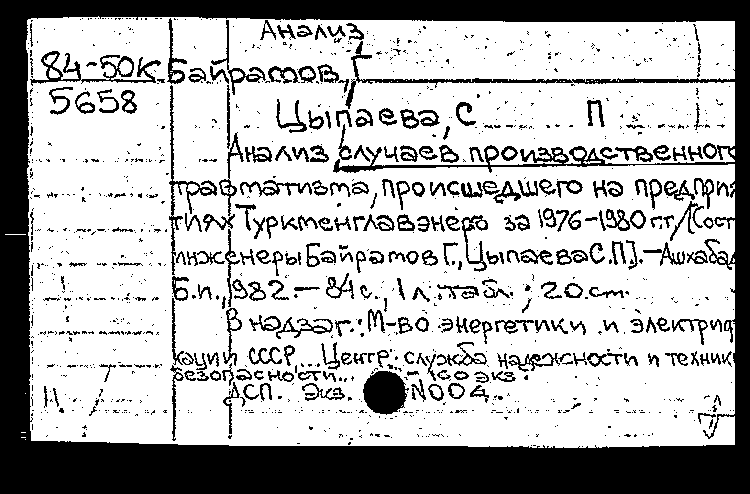 Анализ
84-50К Байрамов, Г
5658
Цыпаева, С П
Анализ случаев производственного
травматизма, происшедшего на предприя
тиях Туркменглавэнерго за 1976-1980 гг. /[Сост
инженеры Байрамов Г., Цыпаева С.П]. - Ашхабад
Б.и., 1982. - 84 с., 1 л. табл.; 20 см.
В надзаг.: М-во энергетики и электриф
кации СССР,... Центр. служба надежности и техники
безопасности... - 100 экз.
ДСП. Экз. N004.